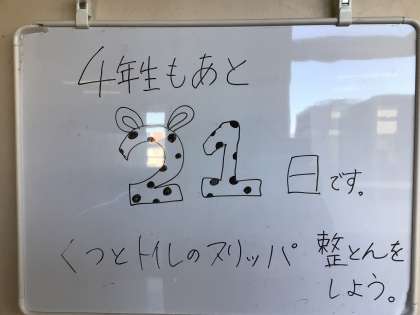 4年生もあと
21日です。
くつとトイレのスリッパ 整とんを
しよう。